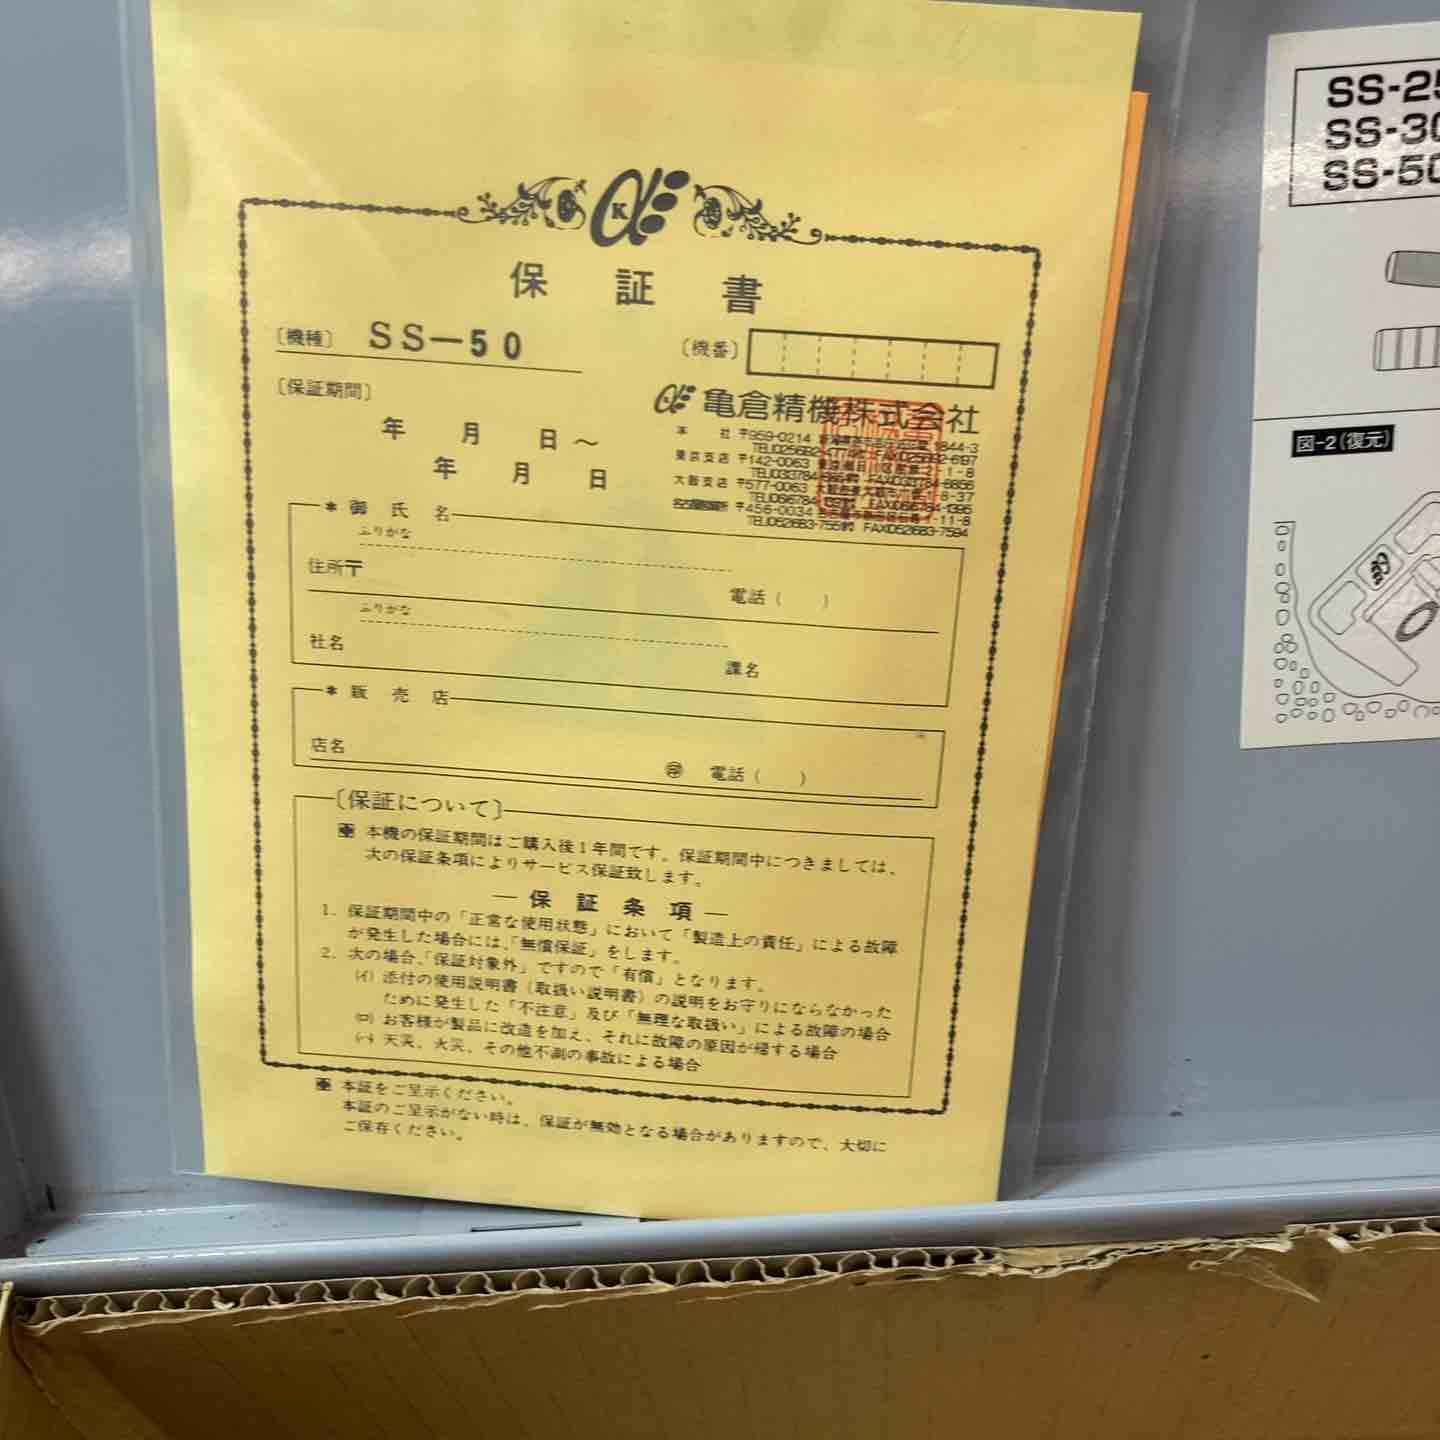 K
保証書
〔機種〕 SS-50
〔機番〕
〔保証期間〕
年 月 日～
年 月 日
亀倉精機株式会社
本社 〒959-0214 1844-3
東京支店 〒142-0063 2-1-8
大阪支店 〒577-0063 1-8-37
〒456-0034 1-11-8
＊御氏名
ふりがな
住所〒
電話（ ）
ふりがな
社名
課名
＊販売店
店名
㊞ 電話（ ）
〔保証について〕
本機の保証期間はご購入後1年間です。保証期間中につきましては、
次の保証条項によりサービス保証致します。
―保証条項―
1. 保証期間中の「正常な使用状態」において「製造上の責任」による故障
が発生した場合には、「無償保証」をします。
2. 次の場合、「保証対象外」ですので「有償」となります。
(イ) 添付の使用説明書（取扱い説明書）の説明をお守りにならなかった
ために発生した「不注意」及び「無理な取扱い」による故障の場合
(ロ) お客様が製品に改造を加え、それに故障の原因が帰する場合
(ハ) 天災、火災、その他不測の事故による場合
本証をご呈示ください。
本証のご呈示がない時は、保証が無効となる場合がありますので、大切に
ご保存ください。
SS-25
SS-30
SS-50
図-2(復元)